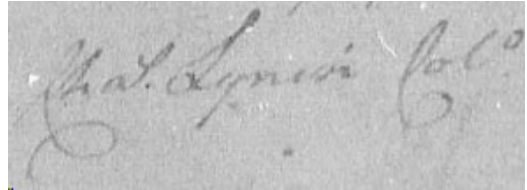 Chas. Lynch Colo